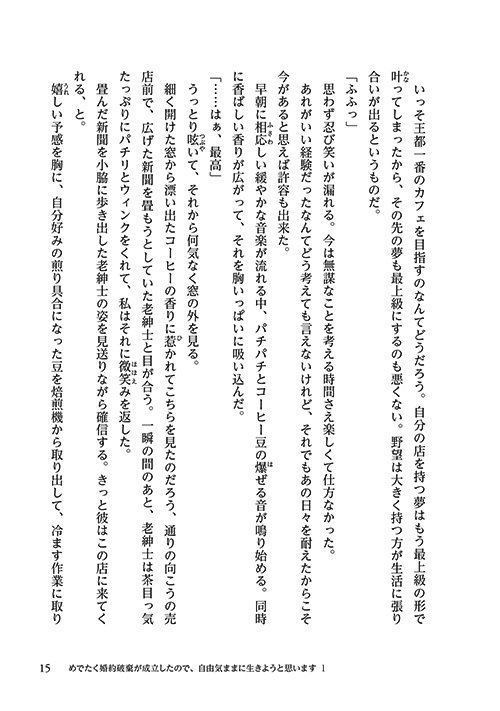 いっそ王都一番のカフェを目指すのなんてどうだろう。自分の店を持つ夢はもう最上級の形で
叶ってしまったから、その先の夢も最上級にするのも悪くない。野望は大きく持つ方が生活に張り
合いが出るというものだ。
「ふふっ」
思わず忍び笑いが漏れる。今は無謀なことを考える時間さえ楽しくて仕方なかった。
あれがいい経験だったなんてどう考えても言えないけれど、それでもあの日々を耐えたからこそ
今があると思えば許容も出来た。
早朝に相応しい緩やかな音楽が流れる中、パチパチとコーヒー豆の爆ぜる音が鳴り始める。同時
に香ばしい香りが広がって、それを胸いっぱいに吸い込んだ。
「……はぁ、最高」
うっとり呟いて、それから何気なく窓の外を見る。
細く開けた窓から漂い出たコーヒーの香りに惹かれてこちらを見たのだろう、通りの向こうの売
店前で、広げた新聞を畳もうとしていた老紳士と目が合う。一瞬の間のあと、老紳士は茶目っ気
たっぷりにパチリとウィンクをくれて、私はそれに微笑みを返した。
畳んだ新聞を小脇に歩き出した老紳士の姿を見送りながら確信する。きっと彼はこの店に来てく
れる、と。
嬉しい予感を胸に、自分好みの煎り具合になった豆を焙煎機から取り出して、冷ます作業に取り
15 めでたく婚約破棄が成立したので、自由気ままに生きようと思います 1